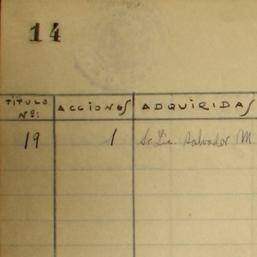 14
TÍTULO Nº: ACCIONES ADQUIRIDAS
19 1 Sr. Lic. Salvador M.